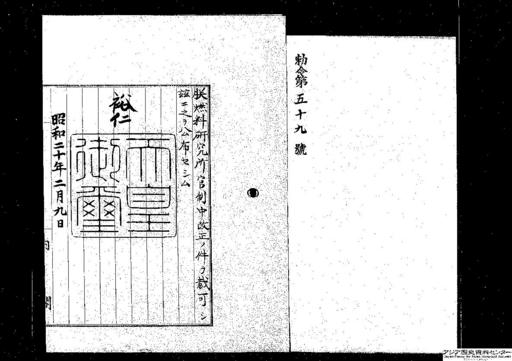 勅令第五十九號
朕燃料研究所官制中改正ノ件ヲ裁可シ
茲ニ之ヲ公布セシム
裕仁
天皇御璽
昭和二十年二月九日
内閣
アジア歴史資料センター